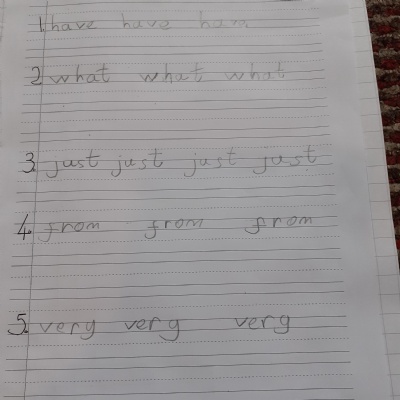 1. have have hava
2. what what what
3. just just just just
4. from from from
5. very very very